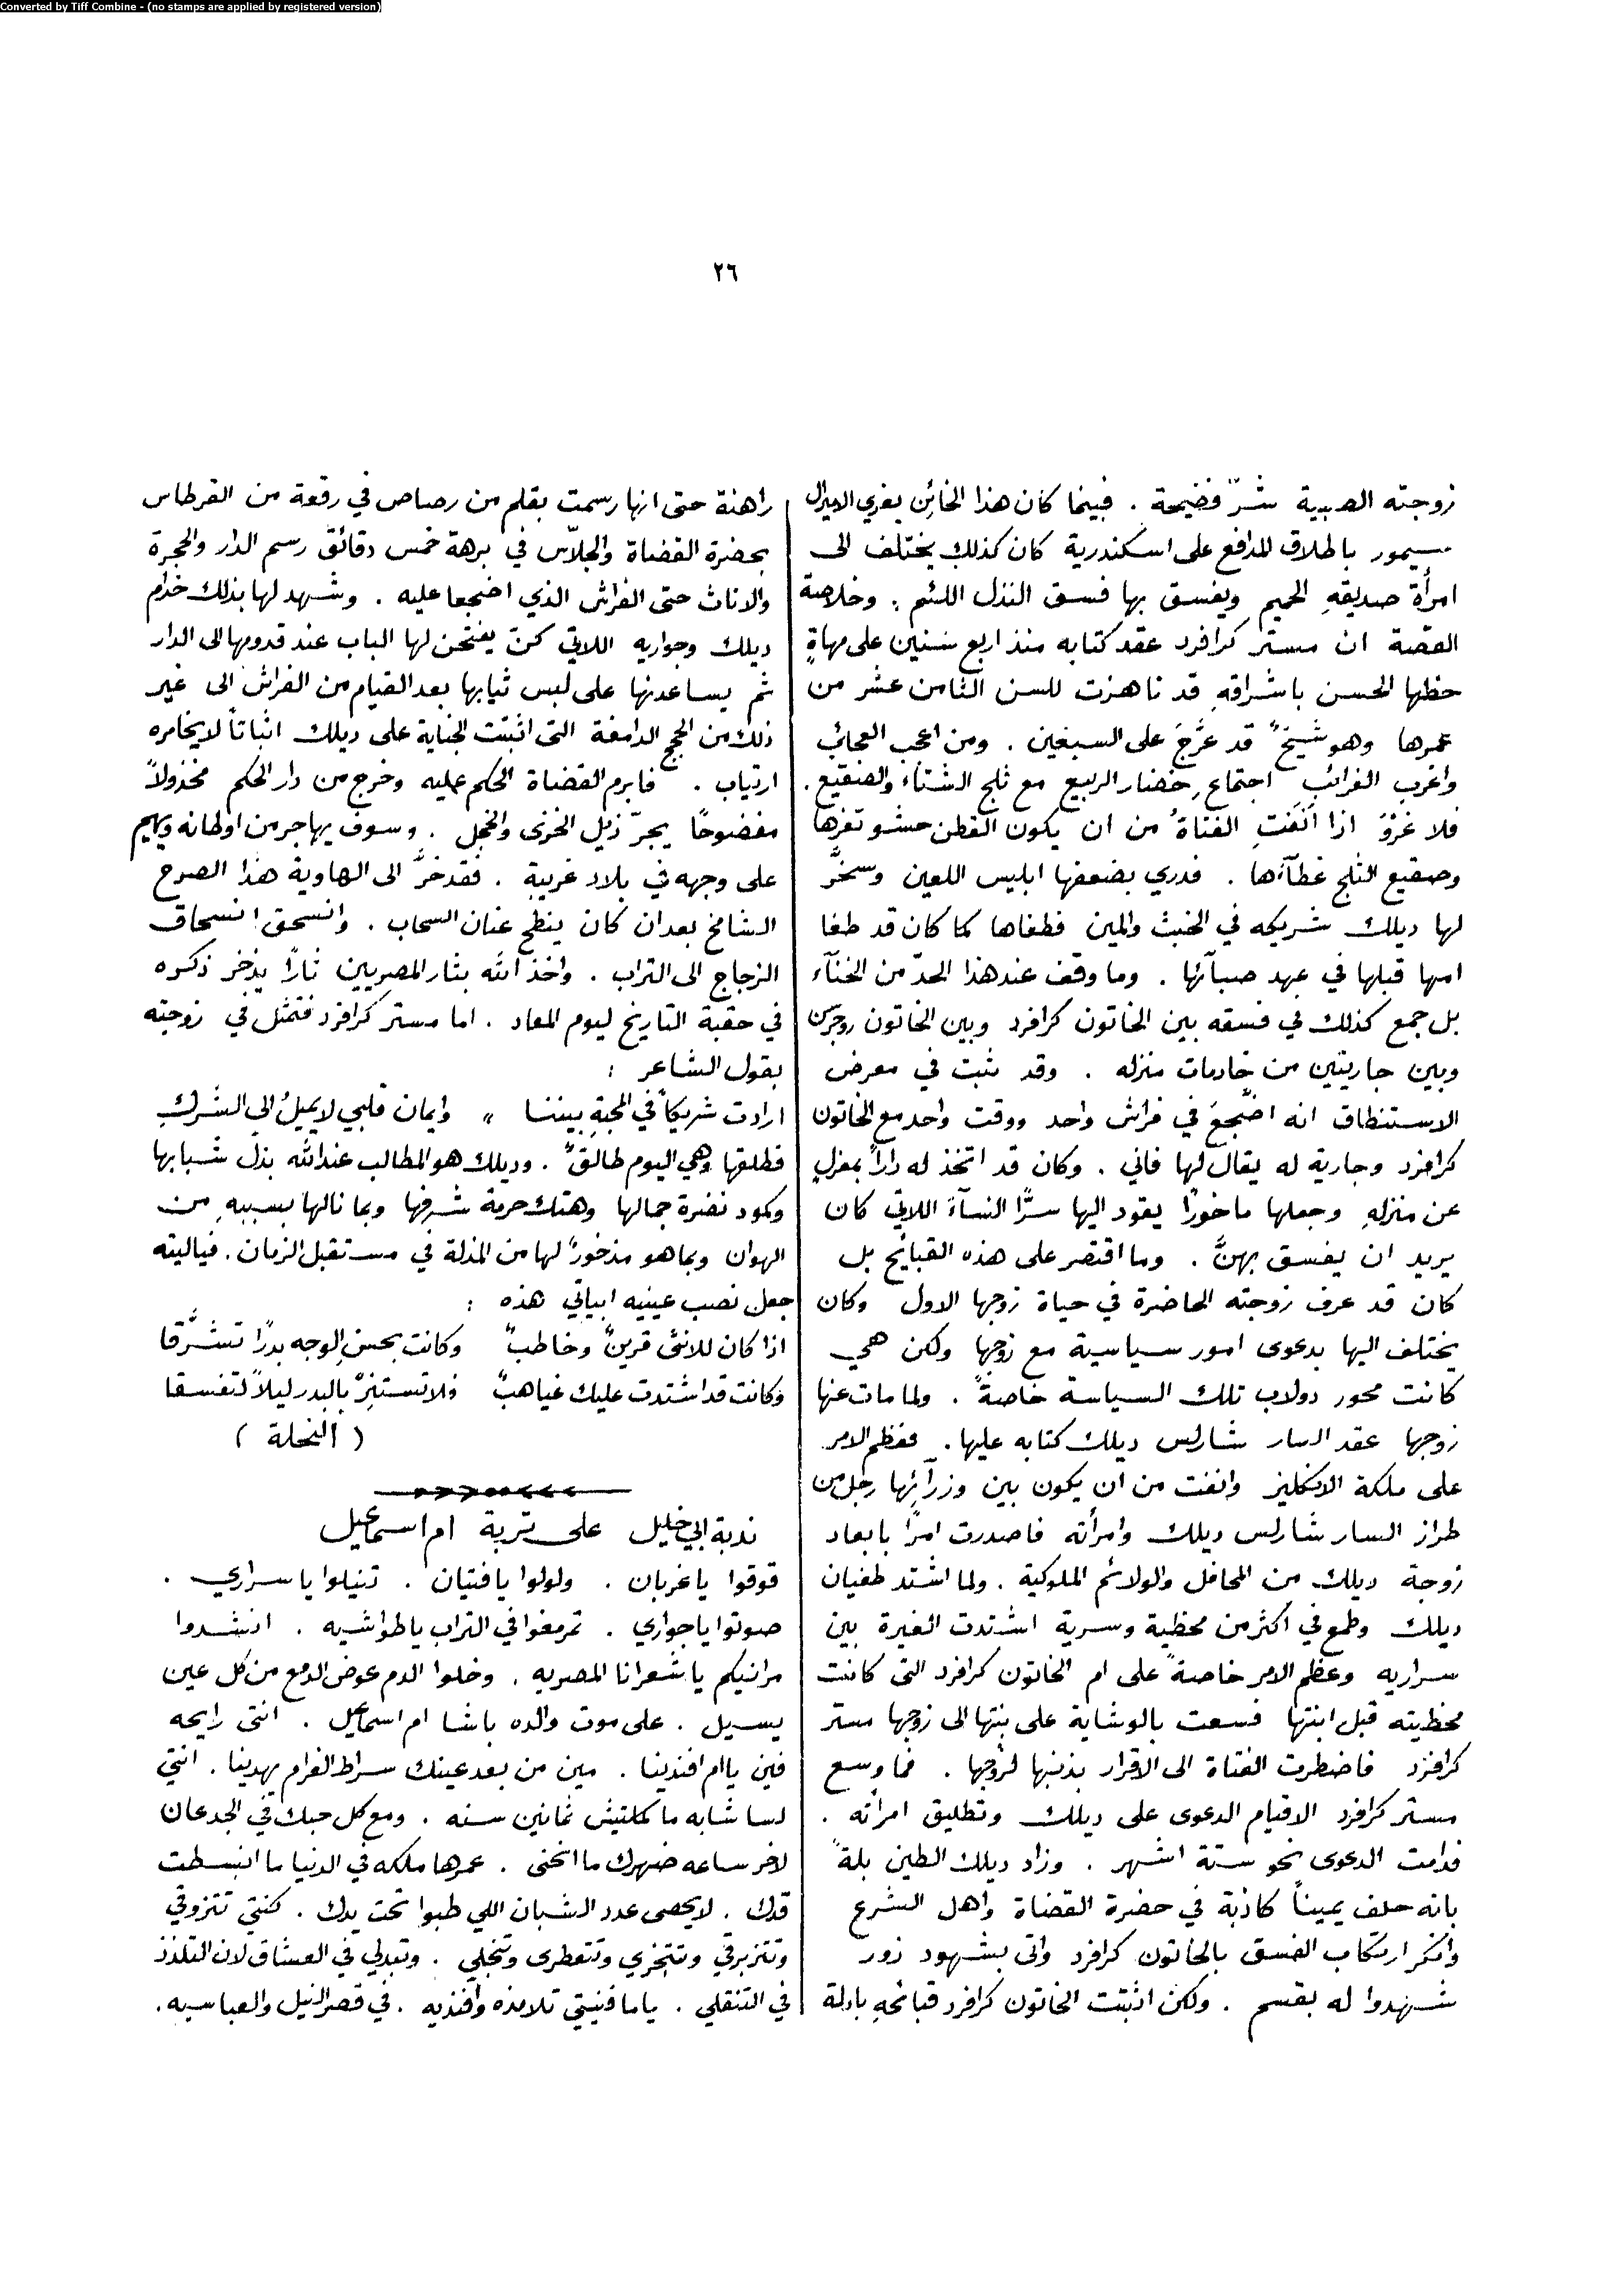 Converted by Tiff Combine - (no stamps are applied by registered version)
٢٦
زوجته الصبية شرّ فضيحة . فبينما كان هذا الخائن يغري الاميرال
سيمور باطلاق المدافع على اسكندرية كان كذلك يختلف الى
امرأة صديقهِ الحميم ويفسق بها فسق النذل اللئيم . وخلاصة
القصة ان مستر كرافرد عقد كتابه منذ اربع سنين على مهاةٍ
حظها الحسن باشراقهِ قد ناهزت للسن الثامن عشر من
عمرها وهو شيخٌ قد عرَّج على السبعين . ومن اعجب العجائب
واغرب الغرائب اجتماع خضار الربيع مع ثلج الشتاء والصقيع .
فلا غرْوَ اذا أنفَتِ الفتاةُ من ان يكون القطن حشو ثغرها
وصقيع الثلج غطآءها . فدري بضعفها ابليس اللعين وسخَّر
لها ديلك شريكه في الخبث والمين فطغاها كما كان قد طغا
امها قبلها في عهد صبآئها . وما وقف عند هذا الحدّ من الخنآء
بل جمع كذلك في فسقه بين الخاتون كرافرد وبين الخاتون روجرس
وبين جاريتين من خادمات منزله . وقد ثبت في معرض
الاستنطاق انه اضَّجعَ في فراش واحد ووقت واحد مع الخاتون
كرافرد وجارية له يقال لها فاني . وكان قد اتخذ له داراً بمعزلٍ
عن منزلهِ وجعلها ماخورًا يقود اليها سرًّا النسآءَ اللاتي كان
يريد ان يفسق بهنَّ . وما اقتصر على هذه القبايح بل
كان قد عرف زوجته الحاضرة في حياة زوجها الاول وكان
يختلف اليها بدعوى امور سياسية مع زوجها ولكن هي
كانت محور دولاب تلك السياسة خاصةً . ولما مات عنها
زوجها عقد السار شارلس ديلك كتابه عليها . فعظم الامر
على ملكة الانكليز وانفت من ان يكون بين وزرآئها رجل من
طراز السار شارلس ديلك وامرأته فاصدرت امرًا بابعاد
زوجة ديلك من المحافل والولائم الملوكية . ولما اشتد طغيان
ديلك وطمع في اكثر من محظية وسرية اشتدت الغيرة بين
سراريه وعظم الامر خاصةً على ام الخاتون كرافرد التي كانت
محظيته قبل ابنتها فسعت بالوشاية على بنتها الى زوجها مستر
كرافرد فاضطرت الفتاة الى الاقرار بذنبها لزوجها . فما وسع
مستر كرافرد الا قيام الدعوى على ديلك وتطليق امرأته .
فدامت الدعوى نحو ستة اشهر . وزاد ديلك الطين بلةً
بانه حلف يميناً كاذبة في حضرة القضاة واهل الشرع
وانكر ارتكاب الفسق بالخاتون كرافرد واتى بشهود زور
شهدوا له بقسم . ولكن اثبتت الخاتون كرافرد قبائحهِ بادلة
راهنة حتى انها رسمت بقلم من رصاص في رقعة من القرطاس
بحضرة القضاة والجلاّس في برهة خمس دقائق رسم الدار والحجرة
والاثاث حتى الفراش الذي اضجعا عليه . وشهد لها بذلك خدام
ديلك وجواريه اللاتي كنّ يفتحن لها الباب عند قدومها الى الدار
ثم يساعدنها على لبس ثيابها بعد القيام من الفراش الى غير
ذلك من الحجج الدامغة التى اثبتت الجناية على ديلك اثباتاً لا يخامره
ارتياب . فابرم القضاة الحكم عليه وخرج من دار الحكم مخذولاً
مفضوحاً يجرّ ذيل الخزى والخجل . وسوف يهاجر من اوطانه ويهيم
على وجهه في بلاد غريبة . فقد خرَّ الى الهاوية هذا الصرح
الشامخ بعد ان كان ينطح عنان السحاب . وانسحق انسحاق
الزجاج الى التراب . واخذ الله بثار المصريين ثارًا يذخر ذكره
في حقبة التاريخ ليوم المعاد . اما مستر كرافرد فتمثل في زوجته
بقول الشاعر :
ارادت شريكاً في المحبةِ بيننا „ وايمان قلبي لا يميلُ الى الشرك
فطلقها وهي اليوم طالقٌ . وديلك هو المطالب عند الله بذلّ شبابها
وكمود نضرة جمالها وهتك حرمة شرفها وبما نالها بسببهِ من
الهوان وبما هو مذخورًا لها من المذلة في مستقبل الزمان . فياليته
جعل نصب عينيه ابياتي هذه :
اذا كان للانثى قرينٌ وخاطبٌ وكانت بحسن الوجه بدرًا تشرَّقا
وكانت قد اشتدت عليك غياهبٌ فلا تستنِرْ بالبدر ليلاً لتفسقا
( النحلة )
ندبة ابي خليل على تربة ام اسماعيل
قوقوا يا غربان . ولولوا يا فتيان . تنيلوا يا سراري .
صوتوا يا جواري . تمرمغوا في التراب يا طواشيه . انشدوا
مراثيكم يا شعرانا المصريه . وخلوا الدم عوض الدمع من كل عين
يسيل . على موت والده باشا ام اسماعيل . انتى رايحه
فين يا ام افندينا . مين من بعد عينك سراط الغرام يهدينا . انتي
لسا شابه ما كملتيش ثمانين سنه . ومع كل حبك في الجدعان
لاخر ساعه ضهرك ما انحنى . عمرها ملكه في الدنيا ما انبسطت
قدك . لا يحصى عدد الشبان اللي طبوا تحت يدك . كنتي تتزوقي
وتتزبرقي وتتبخري وتتعطرى وتتجلي . وتبدلي في العشاق لان التلذذ
في التنقلي . ياما فنيتي تلامذه وافنديه . في قصر النيل والعباسيه .